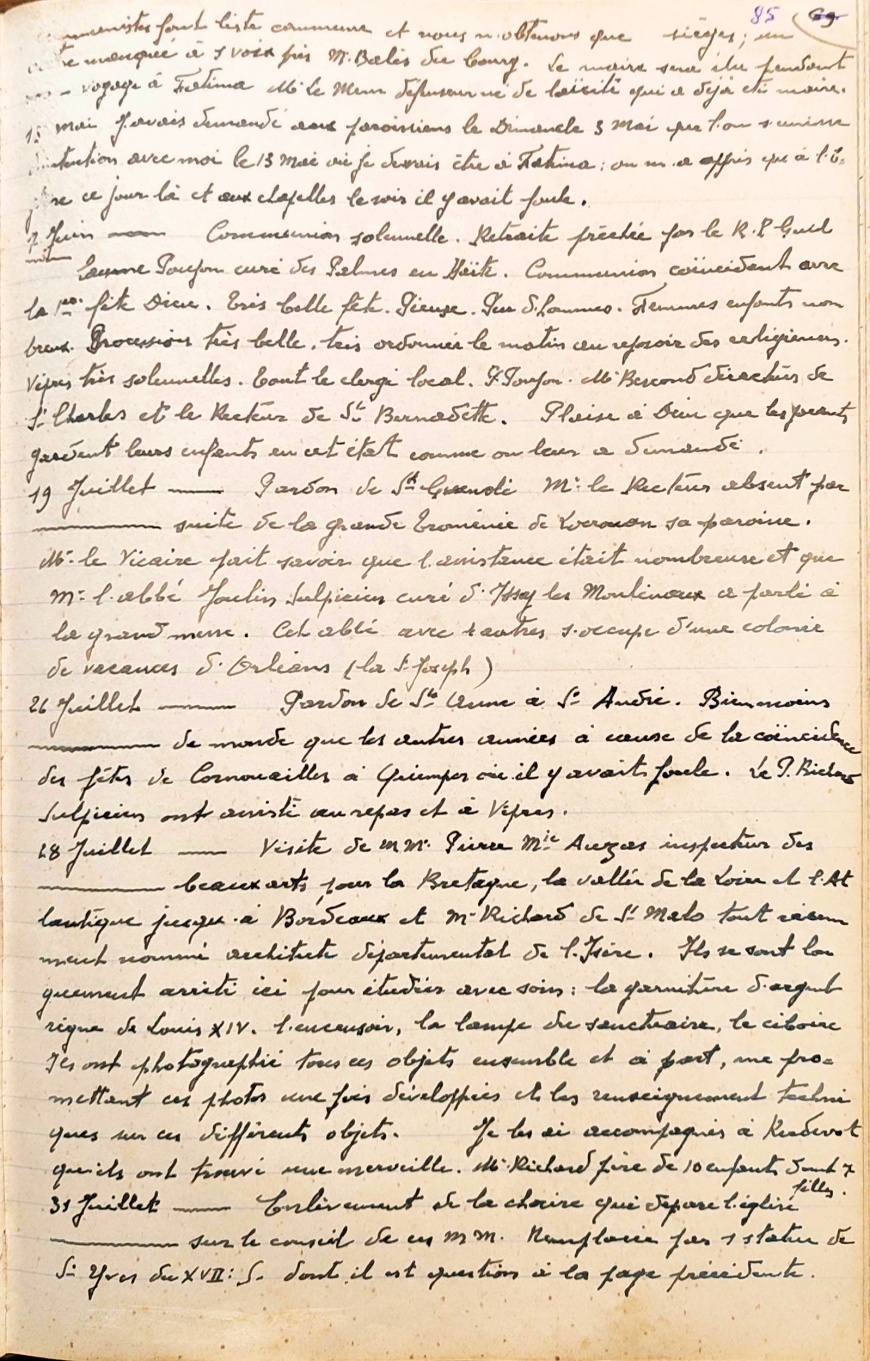 85 69
font liste commune et nous n'obtenons que sièges; un
manqué à 5 voix près Mr. Balès du bourg. Le maire sera élu pendant
voyage à Fatima Mr le Meur défenseur né de laïcité qui a déjà été maire.
13 mai J'avais demandé aux paroissiens le Dimanche 3 Mai que l'on s'unisse
d'intention avec moi le 13 Mai où je devais être à Fatima; on m'a appris que à l'é=
glise ce jour là et aux chapelles le soir il y avait foule.
7 Juin —— Communion solennelle. Retraite prêchée par le R.P Guil
laume Poupon curé des Palmes en Haïti. Communion coïncident avec
la 1ère fête Dieu. Très belle fête. Pieuse. Peu d'hommes. Femmes enfants nom
breux. Procession très belle, très ordonnée le matin au reposoir des religieuses.
Vêpres très solennelles. Tout le clergé local. P. Poupon. Mr Bescond directeur de
St Charles et le Recteur de Ste Bernadette. Plaise à Dieu que les parents
gardent leurs enfants en cet état comme on leur a demandé.
19 Juillet —— Pardon de St Guénolé Mr. le Recteur absent par
—— suite de la grande Troménie de Locronan sa paroisse.
Mr. le Vicaire fait savoir que l'assistance était nombreuse et que
Mr. l'abbé Joulin Sulpicien curé d'Issy les Moulineaux a parlé à
la grand messe. Cet abbé avec autres s'occupe d'une colonie
de vacances d'Orléans (la St Joseph)
26 Juillet —— Pardon de Ste Anne à St André. Bien moins
—— de monde que les autres années à cause de la coïncidence
des fêtes de Cornouailles à Quimper où il y avait foule. Le P. Richard
Sulpicien ont assisté au repas et à Vêpres.
28 Juillet —— Visite de MMr. Pierre Mie Auzas inspecteur des
—— beaux arts pour la Bretagne, la vallée de la Loire et l'At
lantique jusqu'à Bordeaux et Mr Richard de St Malo tout récem
ment nommé architecte départemental de l'Isère. Ils se sont lon
guement arrêté ici pour étudier avec soin: la garniture d'argent
règne de Louis XIV. l'encensoir, la lampe du sanctuaire, le ciboire
Ils ont photographié tous ces objets ensemble et à part, me pro=
mettant ces photos une fois développées et les renseignement techni
ques sur ces différents objets. Je les ai accompagnés à Kerdevot
qu'ils ont trouvé une merveille. Mr Richard père de 10 enfants dont 7
filles.
31 Juillet —— Enlèvement de la chaire qui dépare l'église
—— sur le conseil de ces MM. Remplacée par 1 statue de
St Yves du XVII: S. dont il est question à la page précédente.